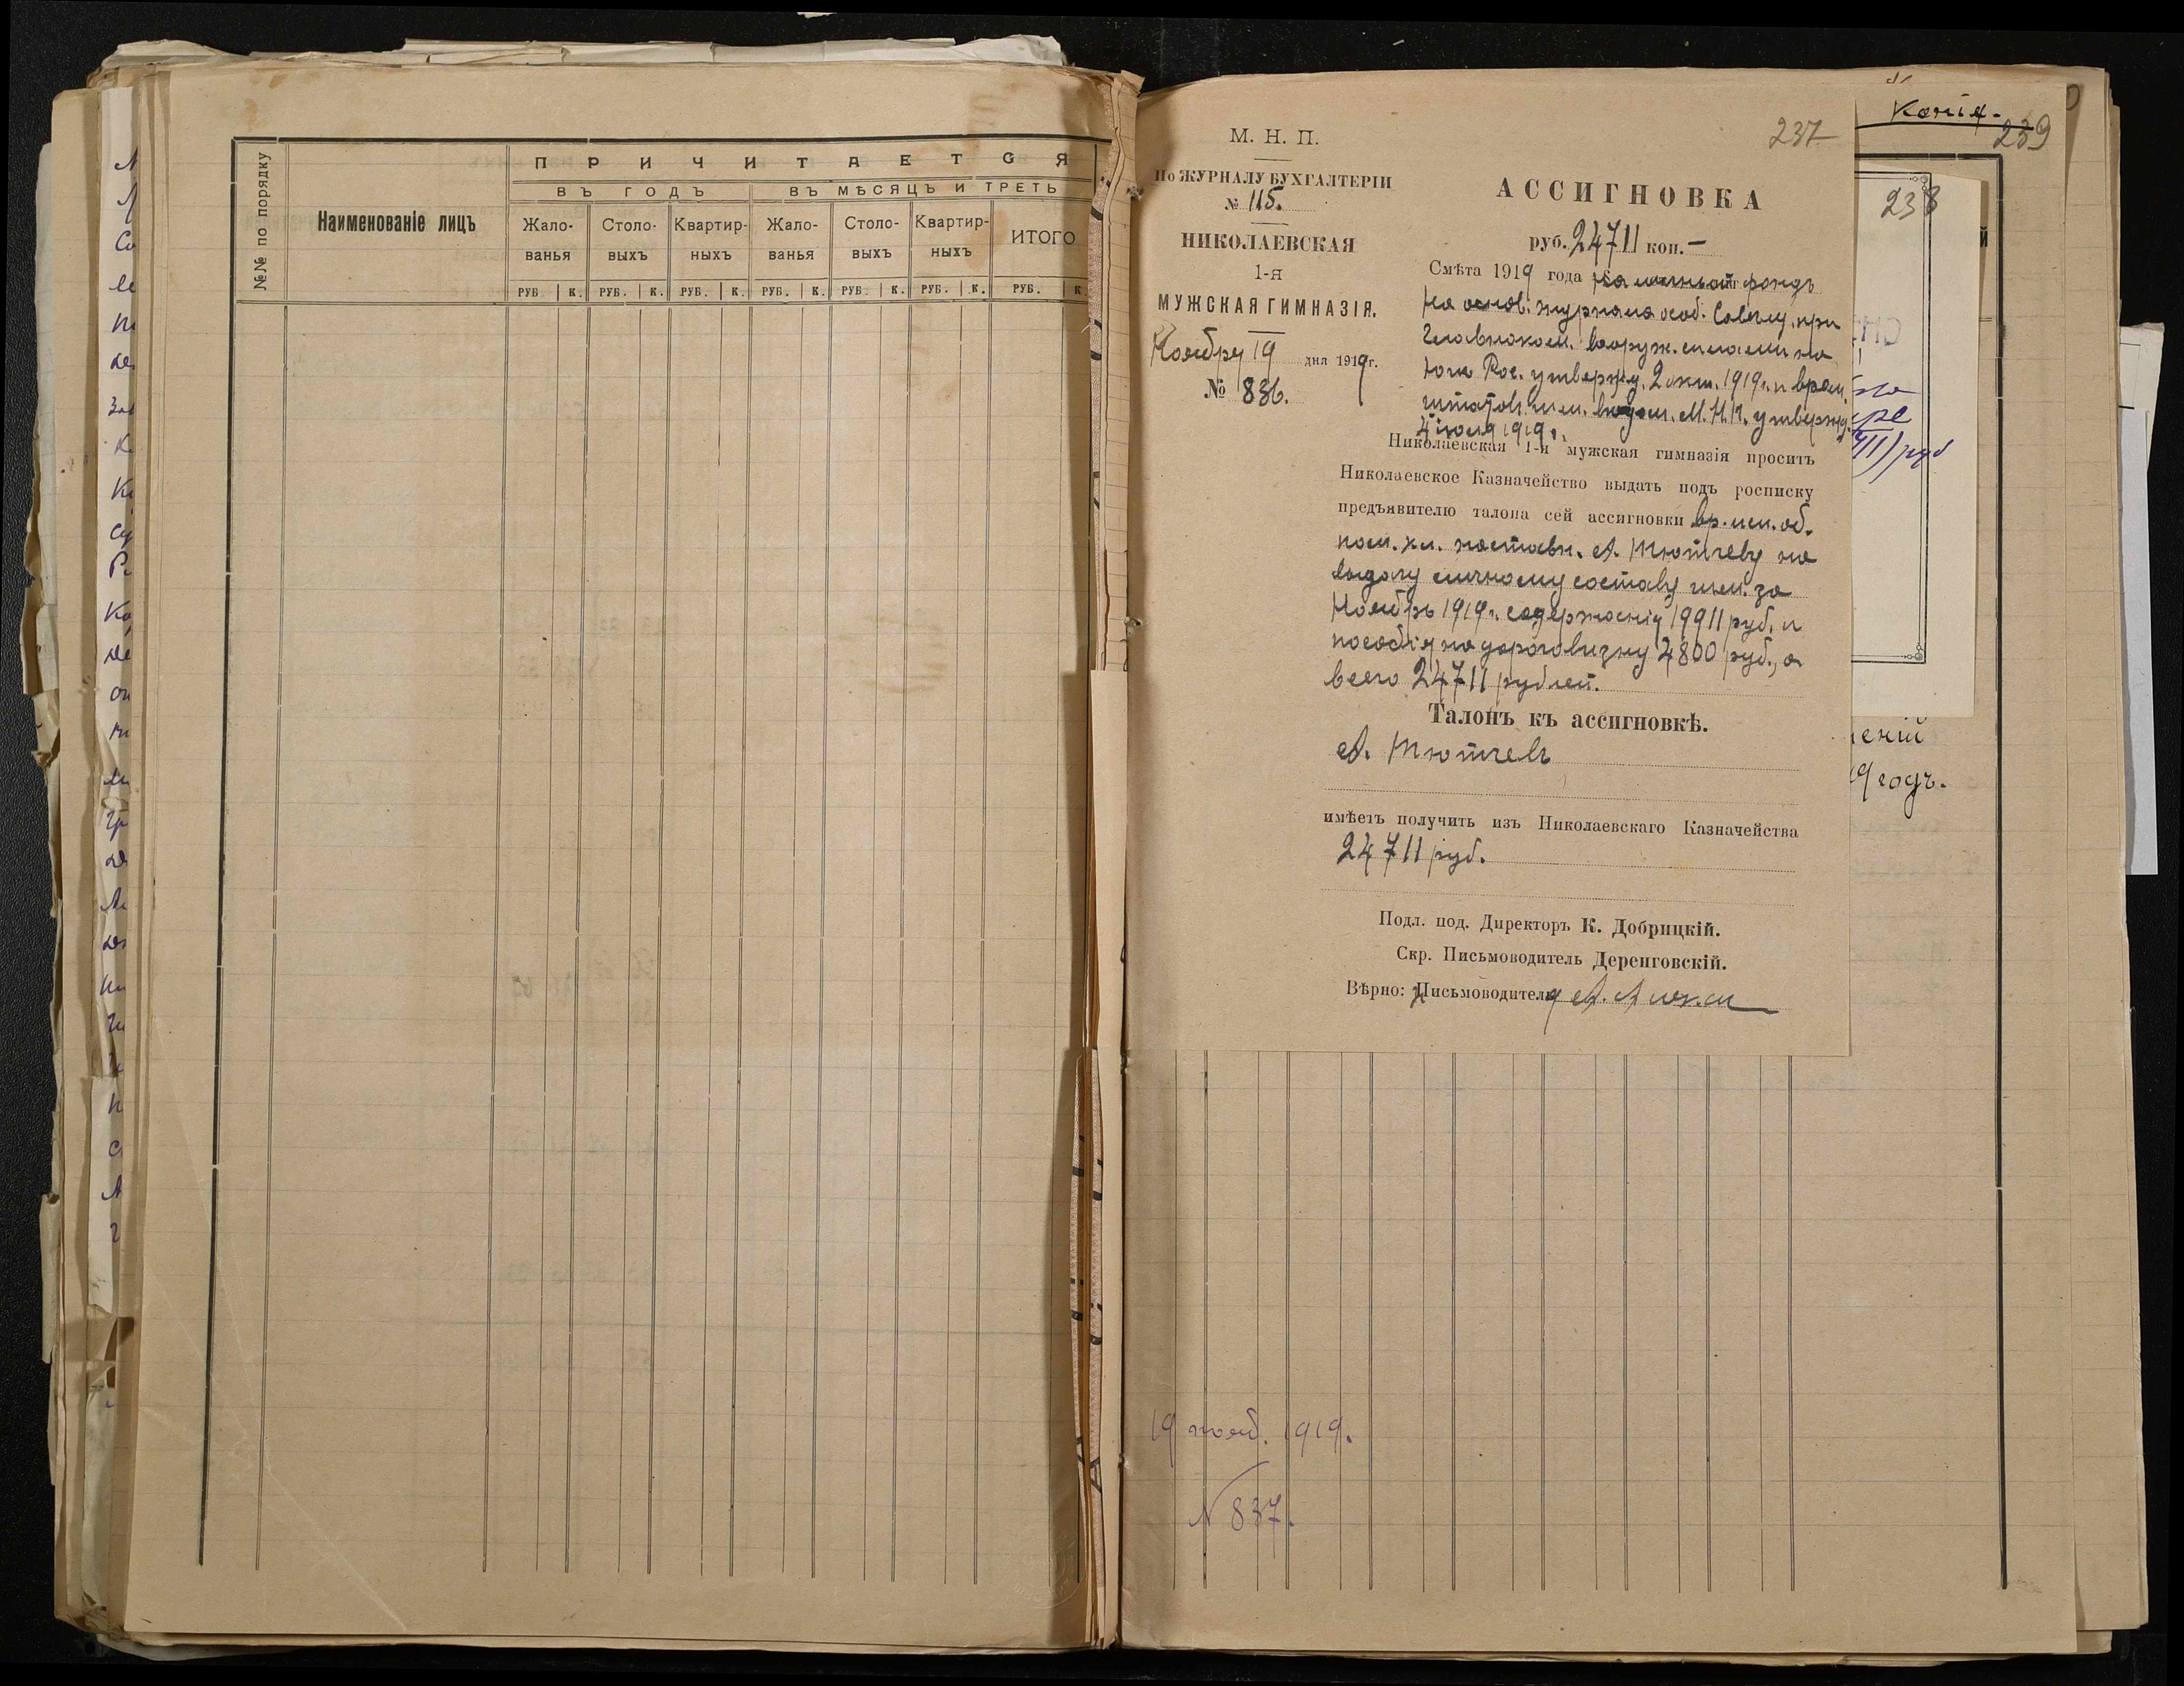 №№ по порядку
Наименованіе лицъ
ПРИЧИТАЕТСЯ
ВЪ ГОДЪ
ВЪ МѢСЯЦЪ И ТРЕТЬ
Жало-
ванья
Столо-
выхъ
Квартир-
ныхъ
Жало-
ванья
Столо-
выхъ
Квартир-
ныхъ
ИТОГО
РУБ. К. РУБ. К. РУБ. К. РУБ. К. РУБ. К. РУБ. К. РУБ. К.
М. Н. П.
По ЖУРНАЛУ БУХГАЛТЕРІИ
№ 115.
НИКОЛАЕВСКАЯ
1-я
МУЖСКАЯ ГИМНАЗІЯ.
Ноября 19 дня 1919 г.
№ 836.
237
АССИГНОВКА
руб. 24711 коп. —
Смѣта 1919 года фондъ
на основ. журнала особ. Совѣщ. при
Главноком. вооруж. силами на
Югѣ Рос. утвержд. 2 окт. 1919 г. и врем.
штатов. М. Н. П. утвержд.
4 іюля 1919 г.
Николаевская 1-я мужская гимназія проситъ
Николаевское Казначейство выдать подъ росписку
предъявителю талона сей ассигновки вр. исп. об.
пом. кл. наставн. А. Тютчеву на
выдачу личному составу гим. за
Ноябрь 1919 г. содержанія 19911 руб. и
пособія на дороговизну 4800 руб., а
всего 24711 рублей.
Талонъ къ ассигновкѣ.
А. Тютчевъ
имѣетъ получить изъ Николаевскаго Казначейства
24711 руб.
Подл. под. Директоръ К. Добрицкій.
Скр. Письмоводитель Деренговскій.
Вѣрно: Письмоводителя
Копія.
239
238
руб
19 годъ.
19 нояб. 1919.
№ 837.